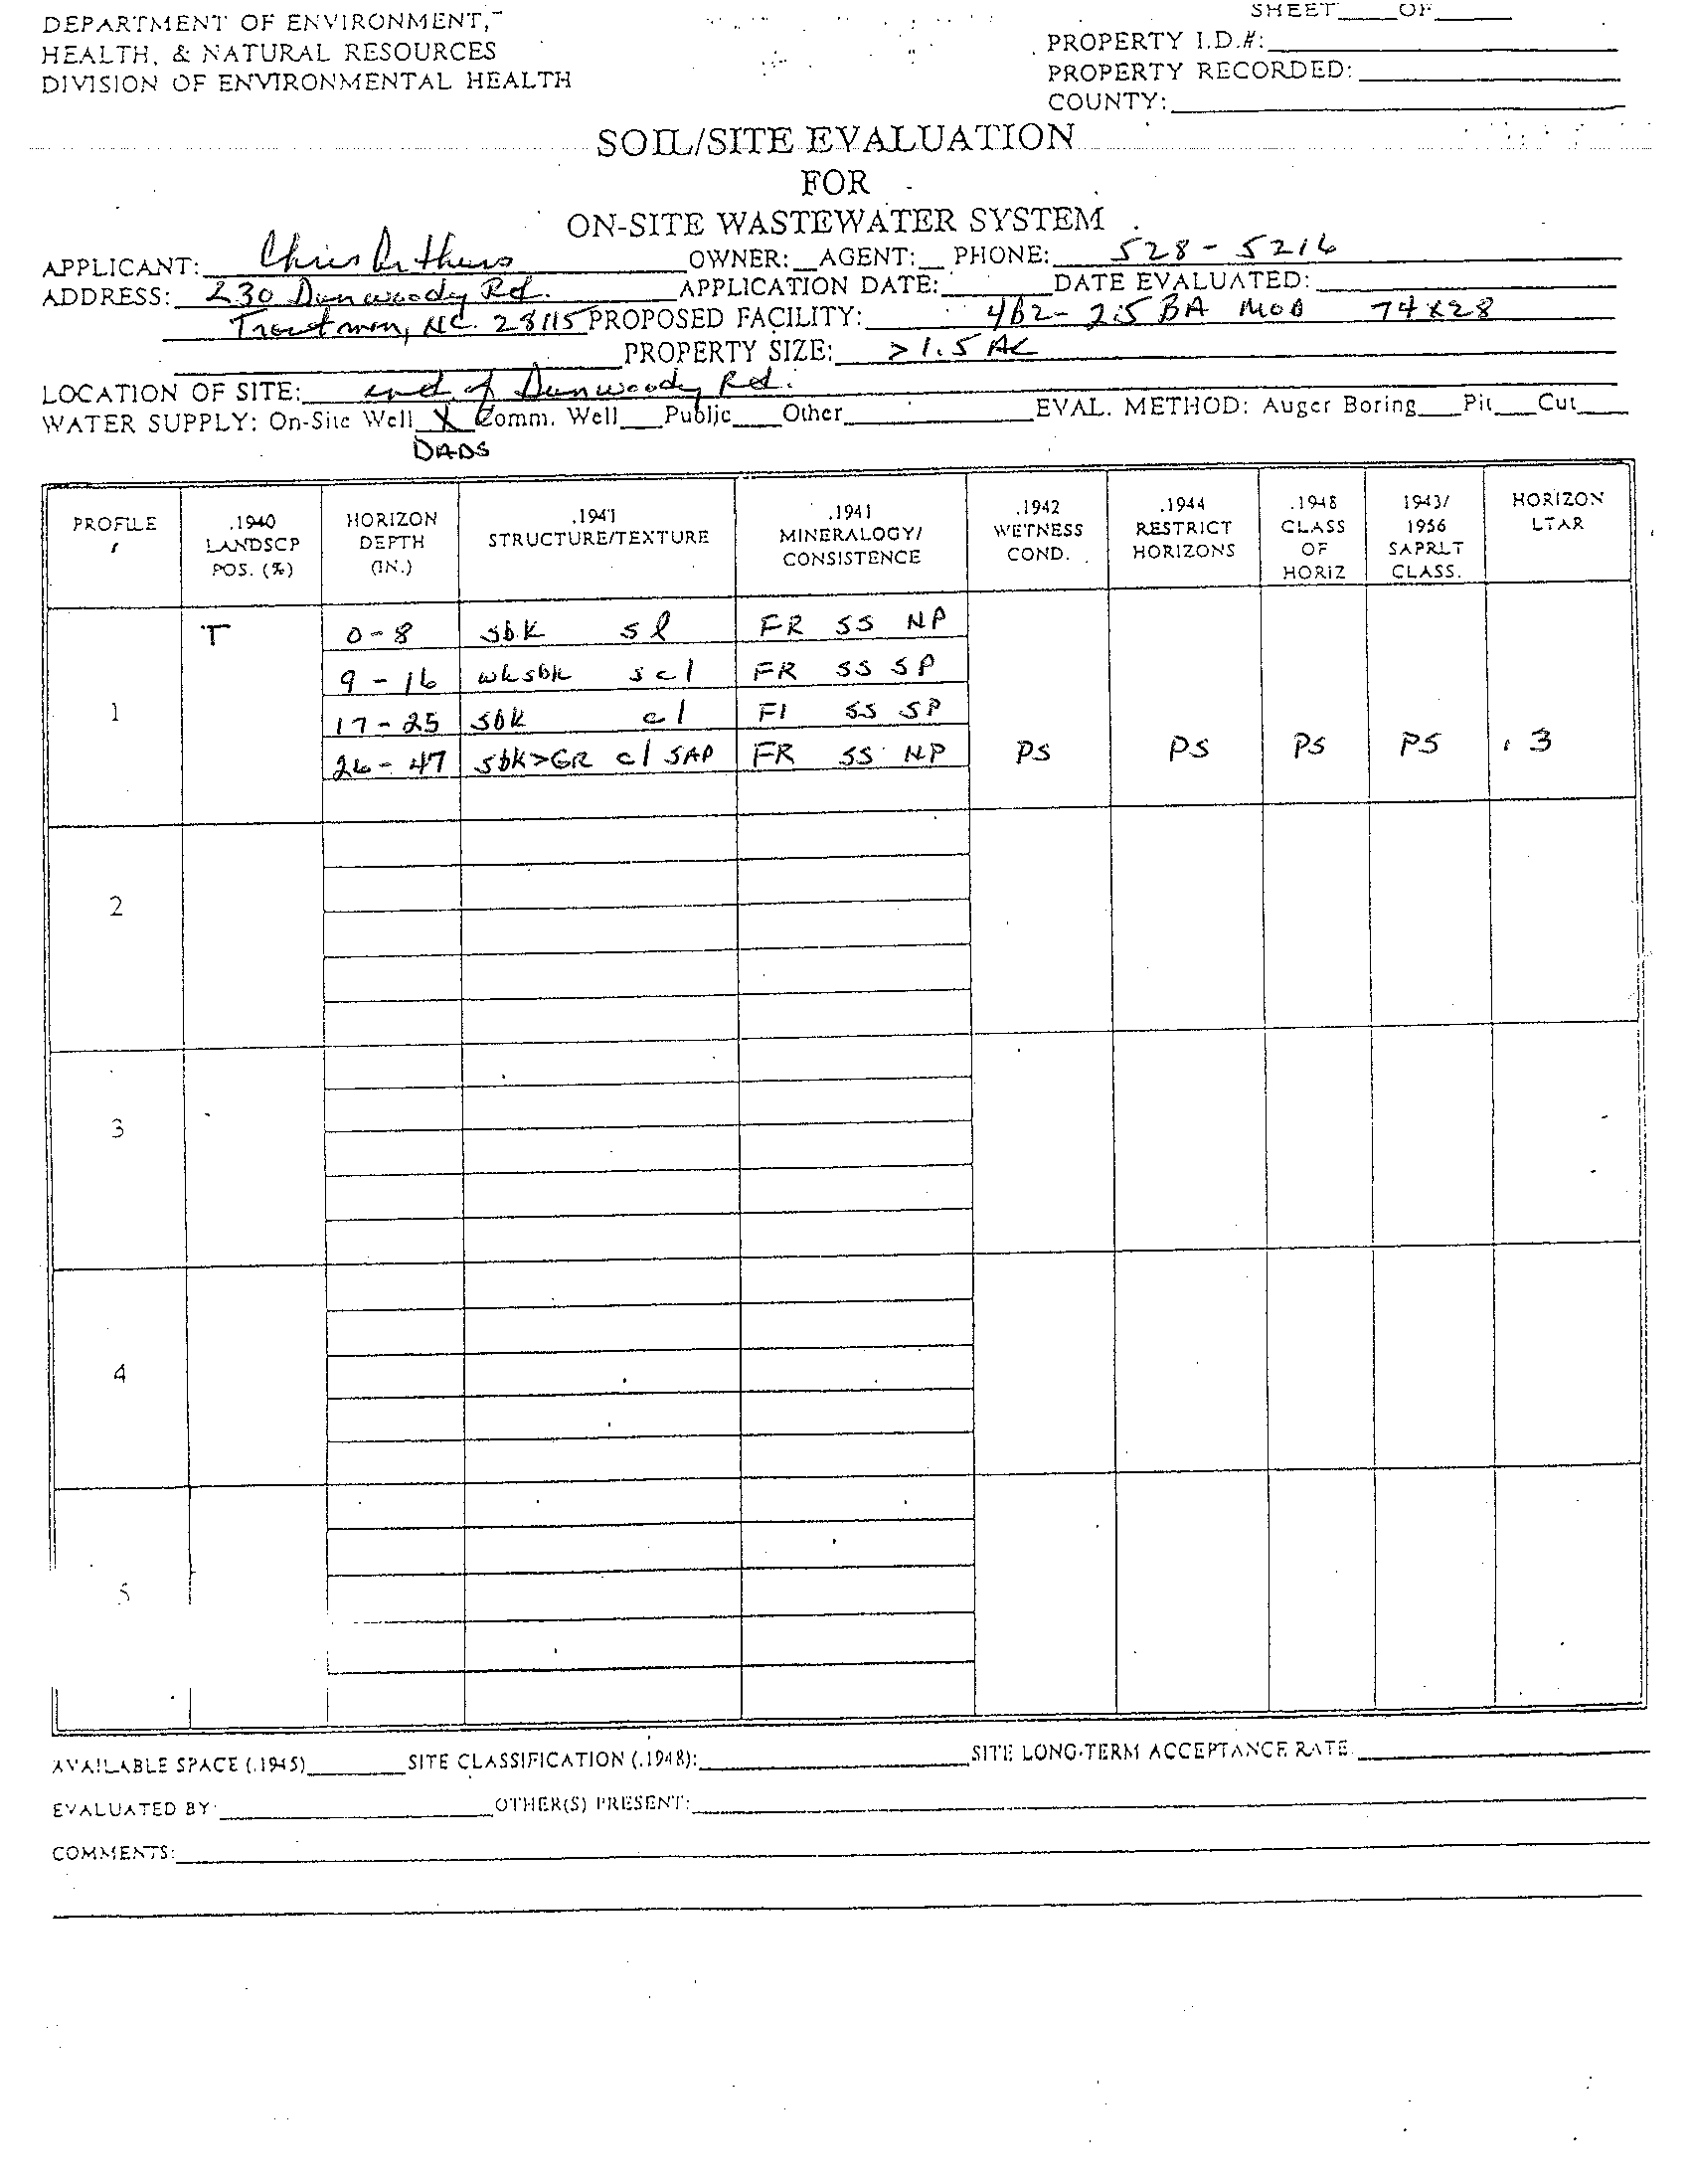 DEPARTMENT OF ENVIRONMENT,
HEALTH, & NATURAL RESOURCES
DIVISION OF ENVIRONMENTAL HEALTH
SHEET____OF_____
PROPERTY I.D.#:
PROPERTY RECORDED:
COUNTY:
SOIL/SITE EVALUATION
FOR
ON-SITE WASTEWATER SYSTEM
APPLICANT: Chris Arthurs OWNER:__AGENT:__ PHONE: 528-5216
ADDRESS: 230 Dunwoody Rd. APPLICATION DATE:______DATE EVALUATED:
Troutman, NC. 28115 PROPOSED FACILITY: 4B2- 2.5 BA MOD 74x28
PROPERTY SIZE: >1.5 AC
LOCATION OF SITE: end of Dunwoody Rd.
WATER SUPPLY: On-Site Well X Comm. Well___Public___Other____________EVAL. METHOD: Auger Boring___Pit___Cut____
DADS
PROFILE
.1940 LANDSCP POS. (%)
HORIZON DEPTH (IN.)
.1941 STRUCTURE/TEXTURE
.1941 MINERALOGY/ CONSISTENCE
.1942 WETNESS COND.
.1944 RESTRICT HORIZONS
.1948 CLASS OF HORIZ
1943/ 1956 SAPRLT CLASS.
HORIZON LTAR
T 0-8 sbk sl FR SS NP
9-16 wksbk scl FR SS SP
1 17-25 sbk cl FI SS SP
26-47 sbk>GR cl SAP FR SS NP PS PS PS PS .3
2
3
4
5
AVAILABLE SPACE (.1945)________SITE CLASSIFICATION (.1948):____________________SITE LONG-TERM ACCEPTANCE RATE
EVALUATED BY:____________________OTHER(S) PRESENT:
COMMENTS: